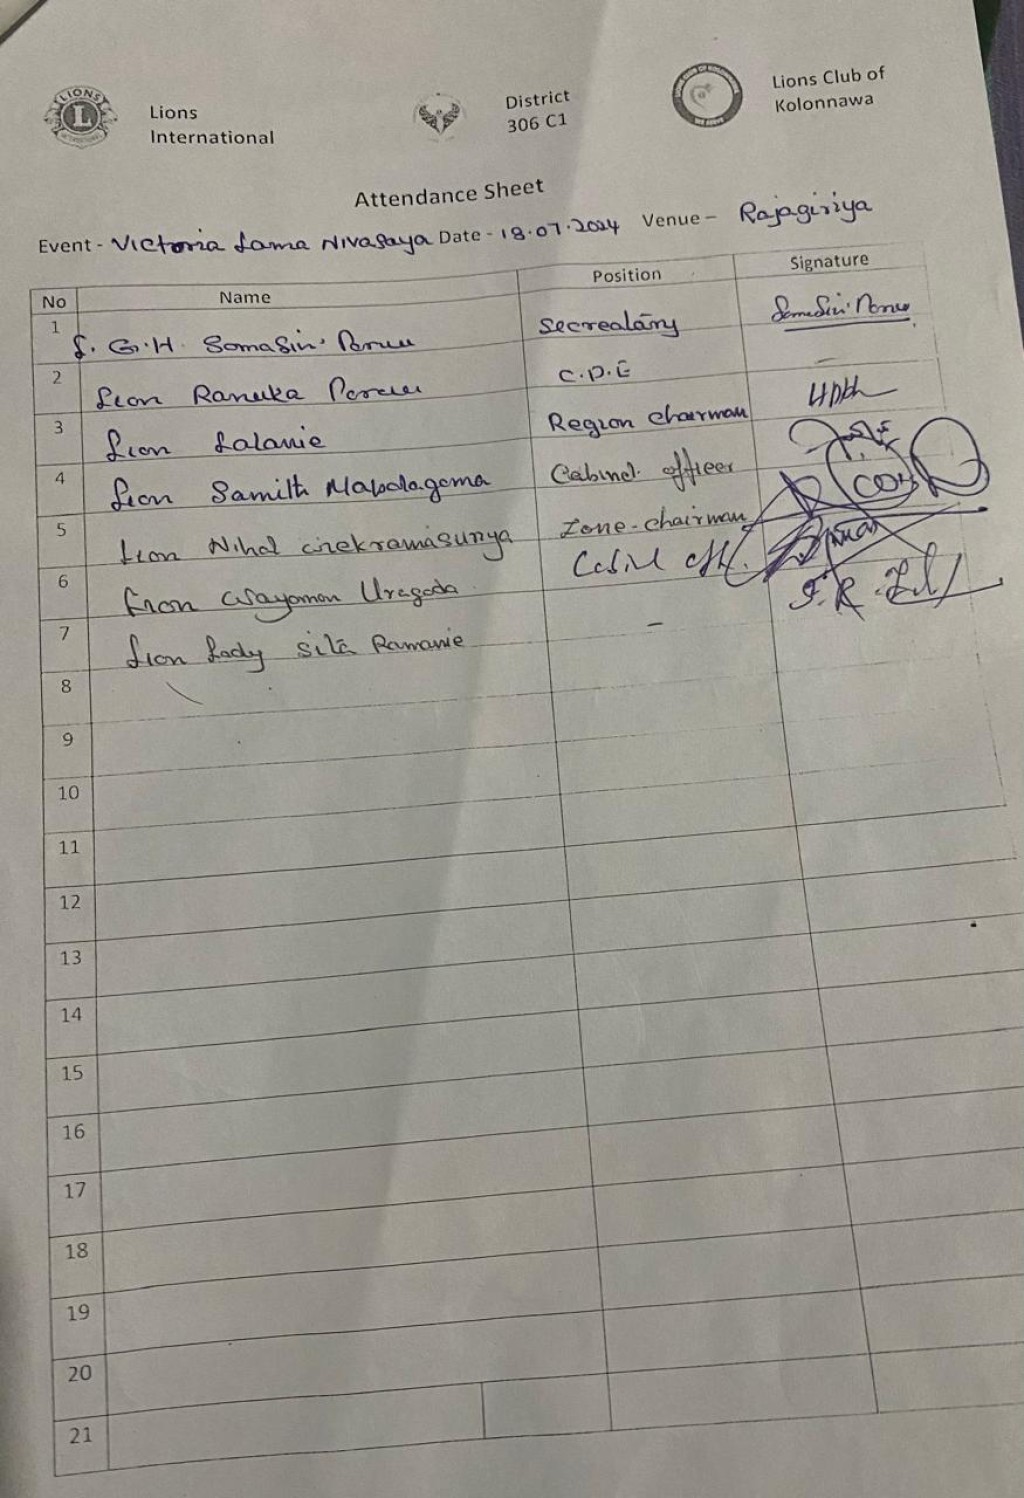 LIONS
L
INTERNATIONAL
Lions
International
District
306 C1
Lions Club of
Kolonnawa
Attendance Sheet
Event - Victoria Lama Nivasaya Date - 18.07.2024 Venue - Rajagiriya
No Name Position Signature
1 L. G. H. Somasiri Perera Secrealary
2 Lion Ranuka Perera C.P.E -
3 Lion Lalanie Region chairman
4 Lion Samith Cabinet officer
5 Lion Nihal Wickramasuriya Zone-chairman
6 Lion Wayoman Uragoda
7 Lion Lady Sita Ramanie -
8
9
10
11
12
13
14
15
16
17
18
19
20
21